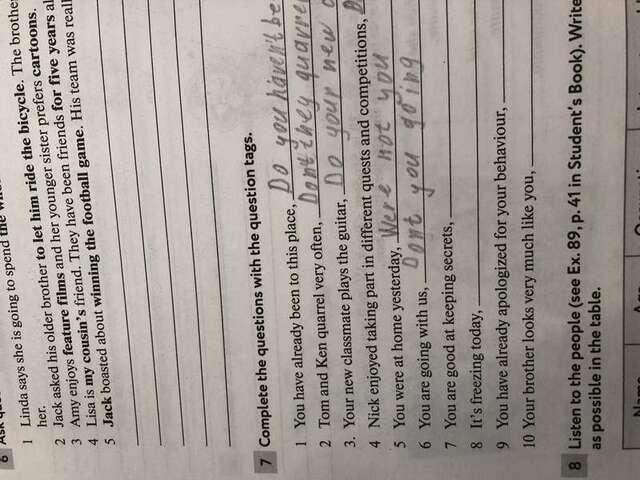 6
1 Linda says she is going to spend the
her.
2 Jack asked his older brother to let him ride the bicycle. The brother
3 Amy enjoys feature films and her younger sister prefers cartoons.
4 Lisa is my cousin's friend. They have been friends for five years
5 Jack boasted about winning the football game. His team was
7 Complete the questions with the question tags.
1 You have already been to this place, Do you haven't be
2 Tom and Ken quarrel very often, Dont they quarre
3. Your new classmate plays the guitar, Do your new
4 Nick enjoyed taking part in different quests and competitions,
5 You were at home yesterday, Were not you
6 You are going with us, Dont you going
7 You are good at keeping secrets,
8 It's freezing today,
9 You have already apologized for your behaviour,
10 Your brother looks very much like you,
8 Listen to the people (see Ex. 89, p. 41 in Student's Book). Write
as possible in the table.
Name Age